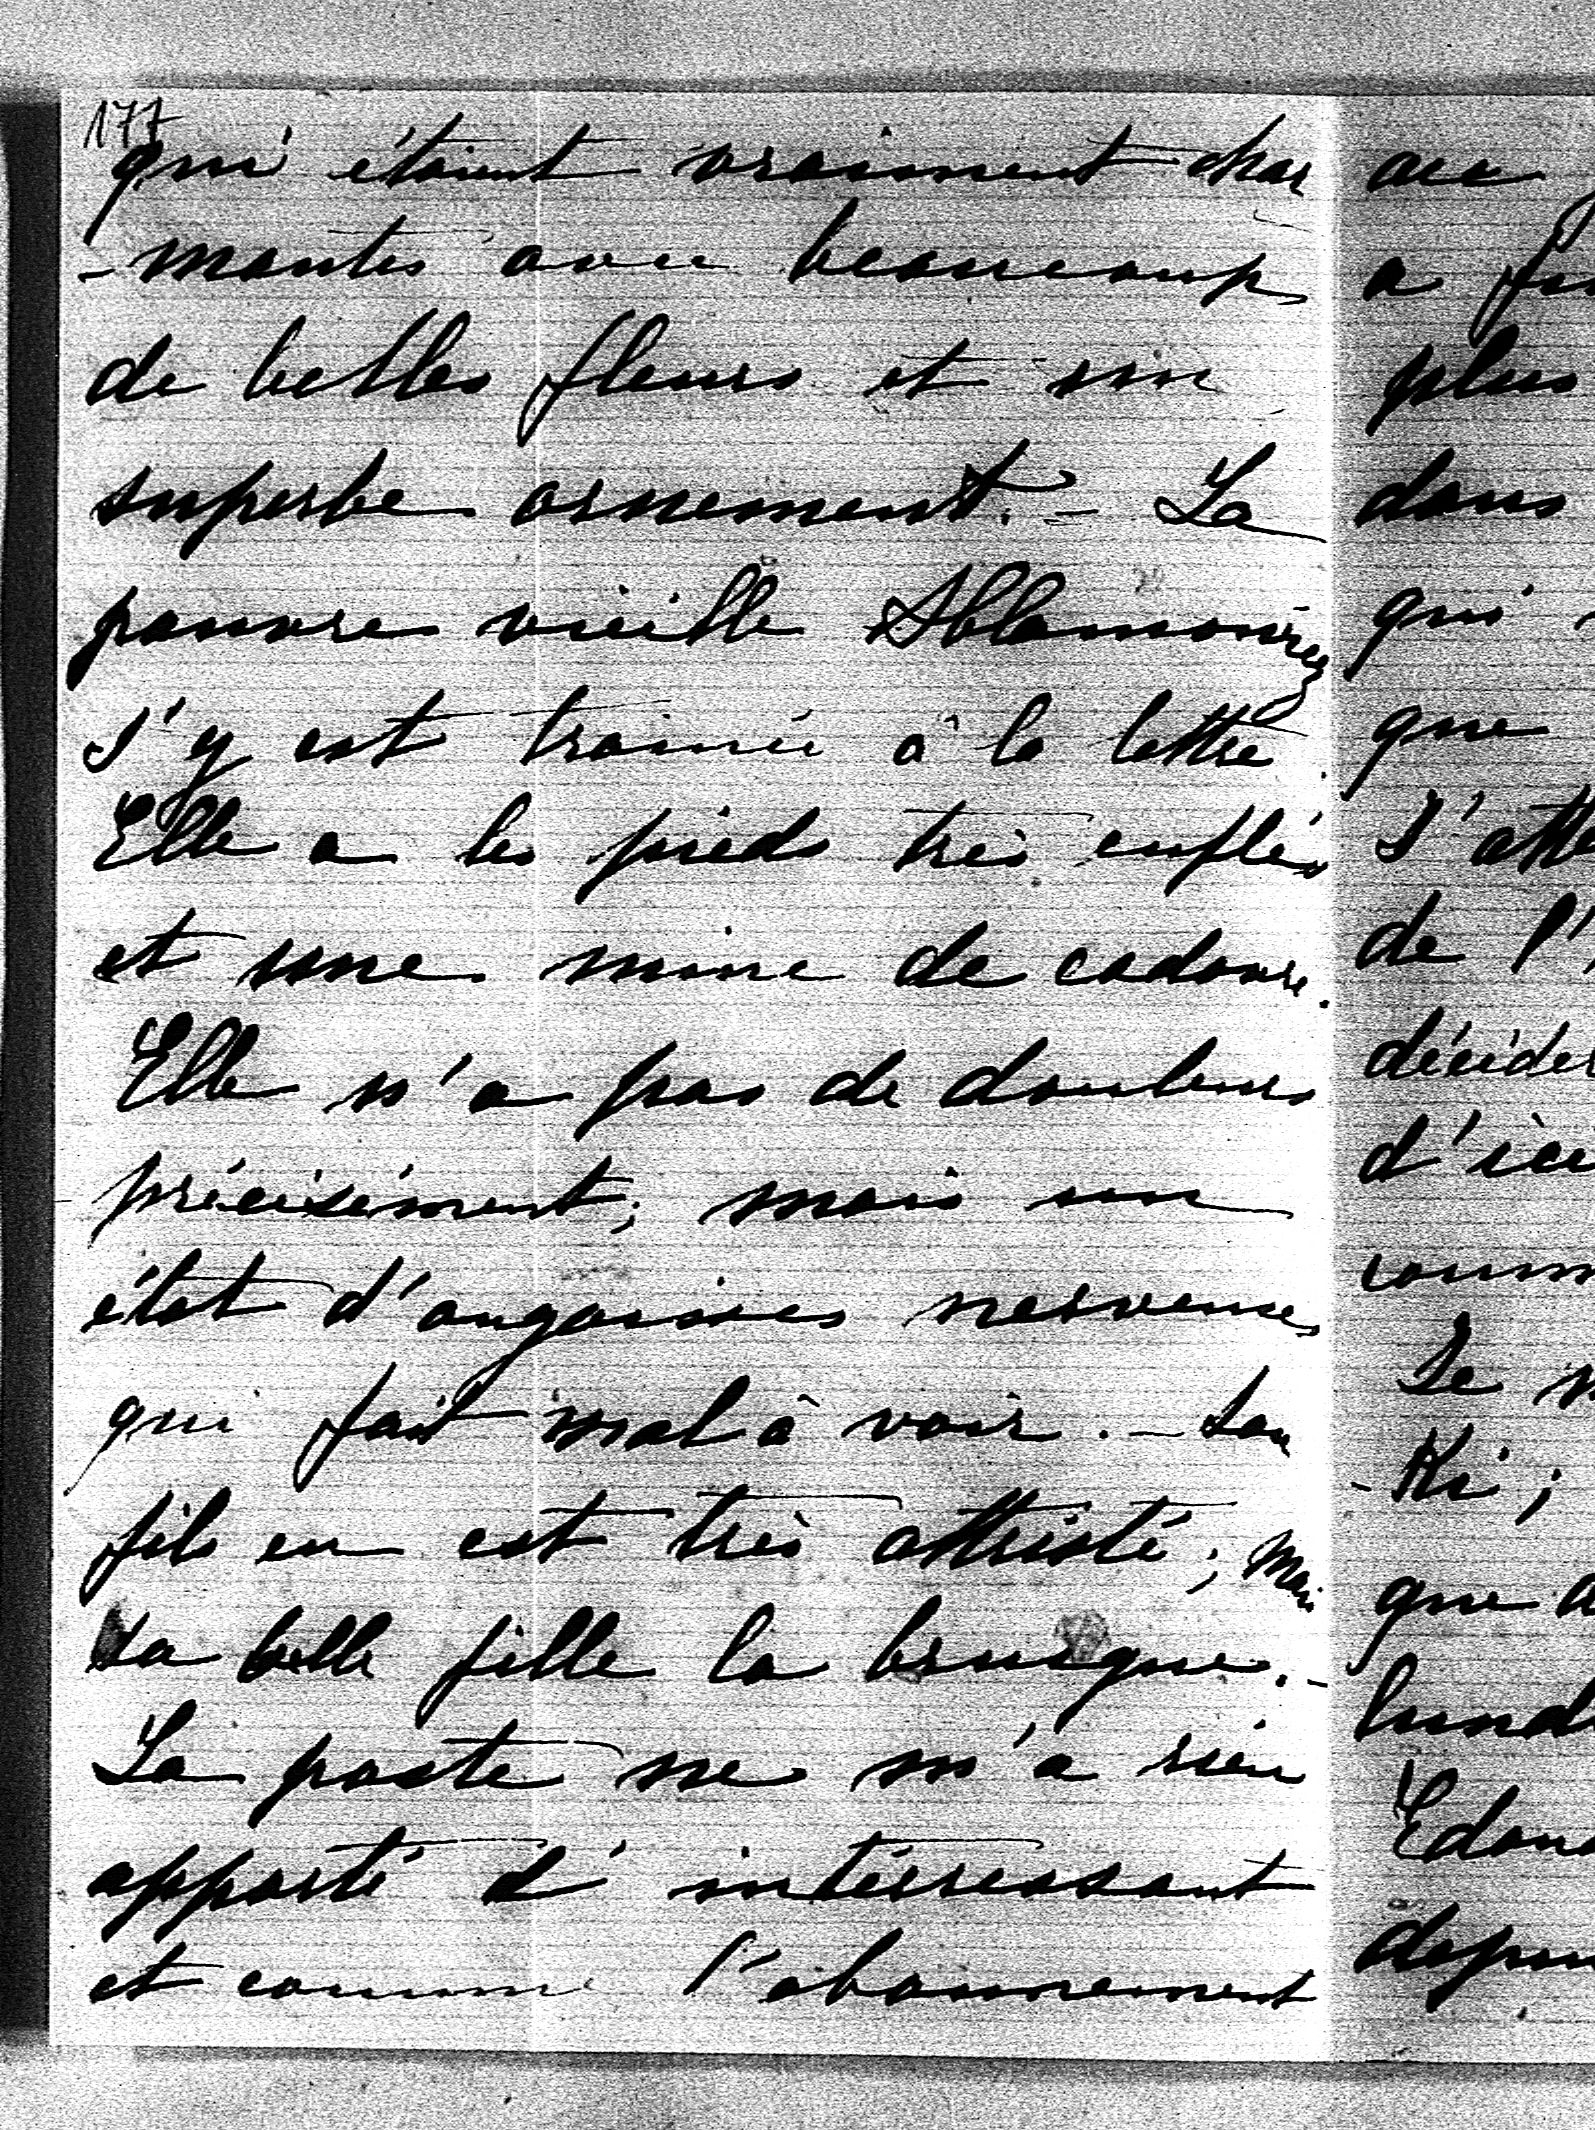 177
qui étaient vraiment char
-mantes avec beaucoup
de belles fleurs et un
superbe ornement. - La
pauvre vieille
s'y est trainée à la lettre.
Elle a les pieds très enflés
et une mine de cadavre.
Elle n'a pas de douleurs
précisément; mais un
état d'angoisses nerveuses
qui fait mal à voir. - Son
fils en est très attristé; mais
sa belle fille la brusque. -
La poste ne m'a rien
apporté d'intérressant
et comme l'abonnement
a
plus
dans
qui
que
J'atte
de l'
décider
d'ici
comm
Je
-Ki;
que
lund
Edou
depu